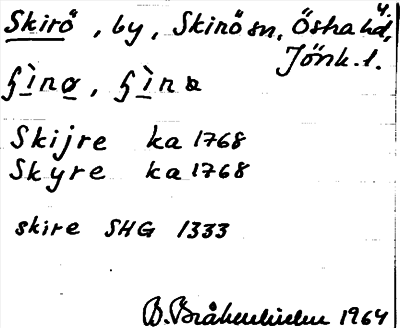 Skirö, by, Skirö sn, Östra hd,
Jönk. l.
Skijre ka 1768
Skyre ka 1768
skire SHG 1333
1964